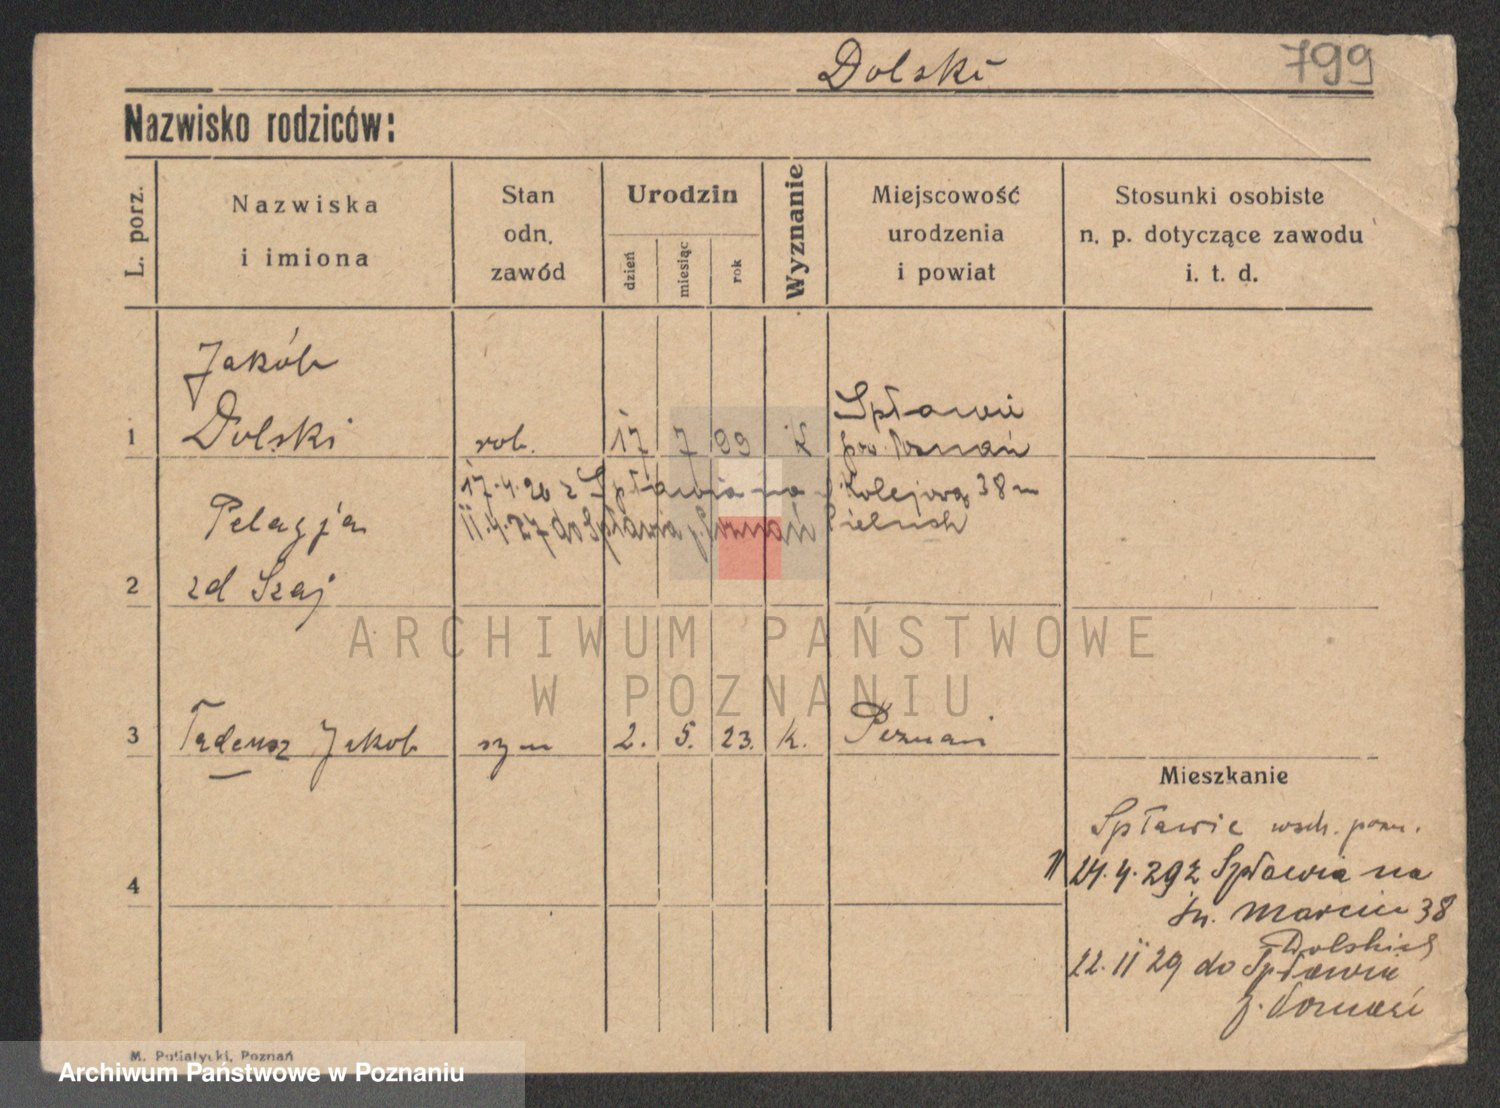 Dolski
799
Nazwisko rodziców:
L. porz.
Nazwiska
i imiona
Stan
odn.
zawód
Urodzin
dzień
miesiąc
rok
Wyznanie
Miejscowość
urodzenia
i powiat
Stosunki osobiste
n. p. dotyczące zawodu
i. t. d.
Jakób
1 Dolski rob. 17 7 99 K Spławie
pow. Poznań
17.4.26 z Spławia na Kolejową 38 m
11.4.27 do Spławia p. Poznań
Pelagja
2 zd Szaj
ARCHIWUM PAŃSTWOWE
W POZNANIU
3 Tadeusz Jakob syn 2. 5. 23. K. Poznań
Mieszkanie
Spławie wsch. pozn.
4
24.4.29 z Spławia na
Św. Marcin 38
Dolskich
22.11 29 do Spławia
p. Poznań
M. Putiatycki, Poznań
Archiwum Państwowe w Poznaniu